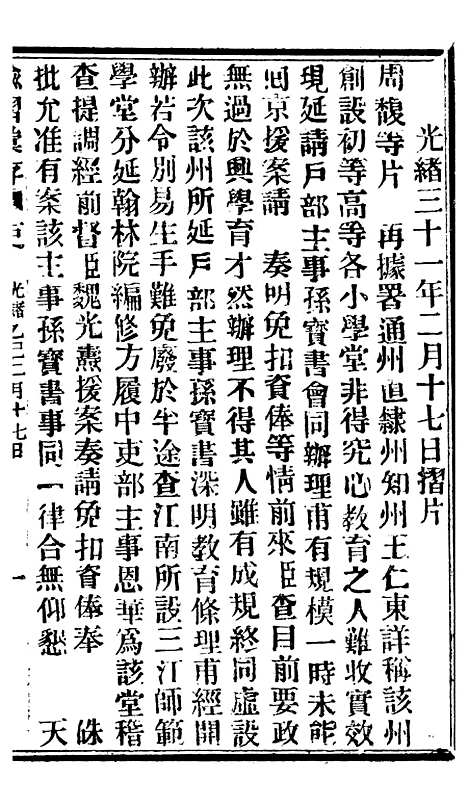 光緒三十一年二月十七日摺片
周馥等片 再據署通州直隸州知州王仁東詳稱該州
創設初等高等各小學堂非得究心教育之人難收實效
現延請戶部主事孫寶書會同辦理甫有規模一時未能
回京援案請 奏明免扣資俸等情前來臣查目前要政
無過於興學育才然辦理不得其人雖有成規終同虛設
此次該州所延戶部主事孫寶書深明教育條理甫經開
辦若令別易生手難免廢於半途查江南所設三江師範
學堂分延翰林院編修方履中吏部主事恩華為該堂稽
查提調經前督臣魏光燾援案奏請免扣資俸奉 硃
批允准有案該主事孫寶書事同一律合無仰懇 天
諭摺彙存 光緒乙巳二月十七日 一